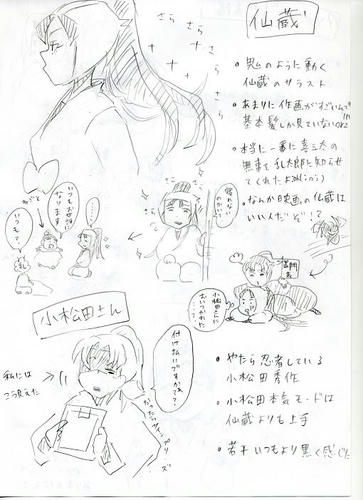 仙蔵
さら
さら
さら
さら
のように動く
仙蔵のサラスト
あまりに作画がすごいんで
基本髪しか見ていない
本当に一番に喜三太の
無事を乱太郎に知らせ
てくれた
なんか映画の仙蔵は
いい人だど!?
眠れない
のかい?
いつも
お世話に
なります
いつも?
小松田さんに
おいつかれた
小松田さん
付け払いですかぁ〜?
私には
こう見えた
やたら忍者している
小松田秀作
小松田本気モードは
仙蔵よりも上手
若干いつもより黒く感じた